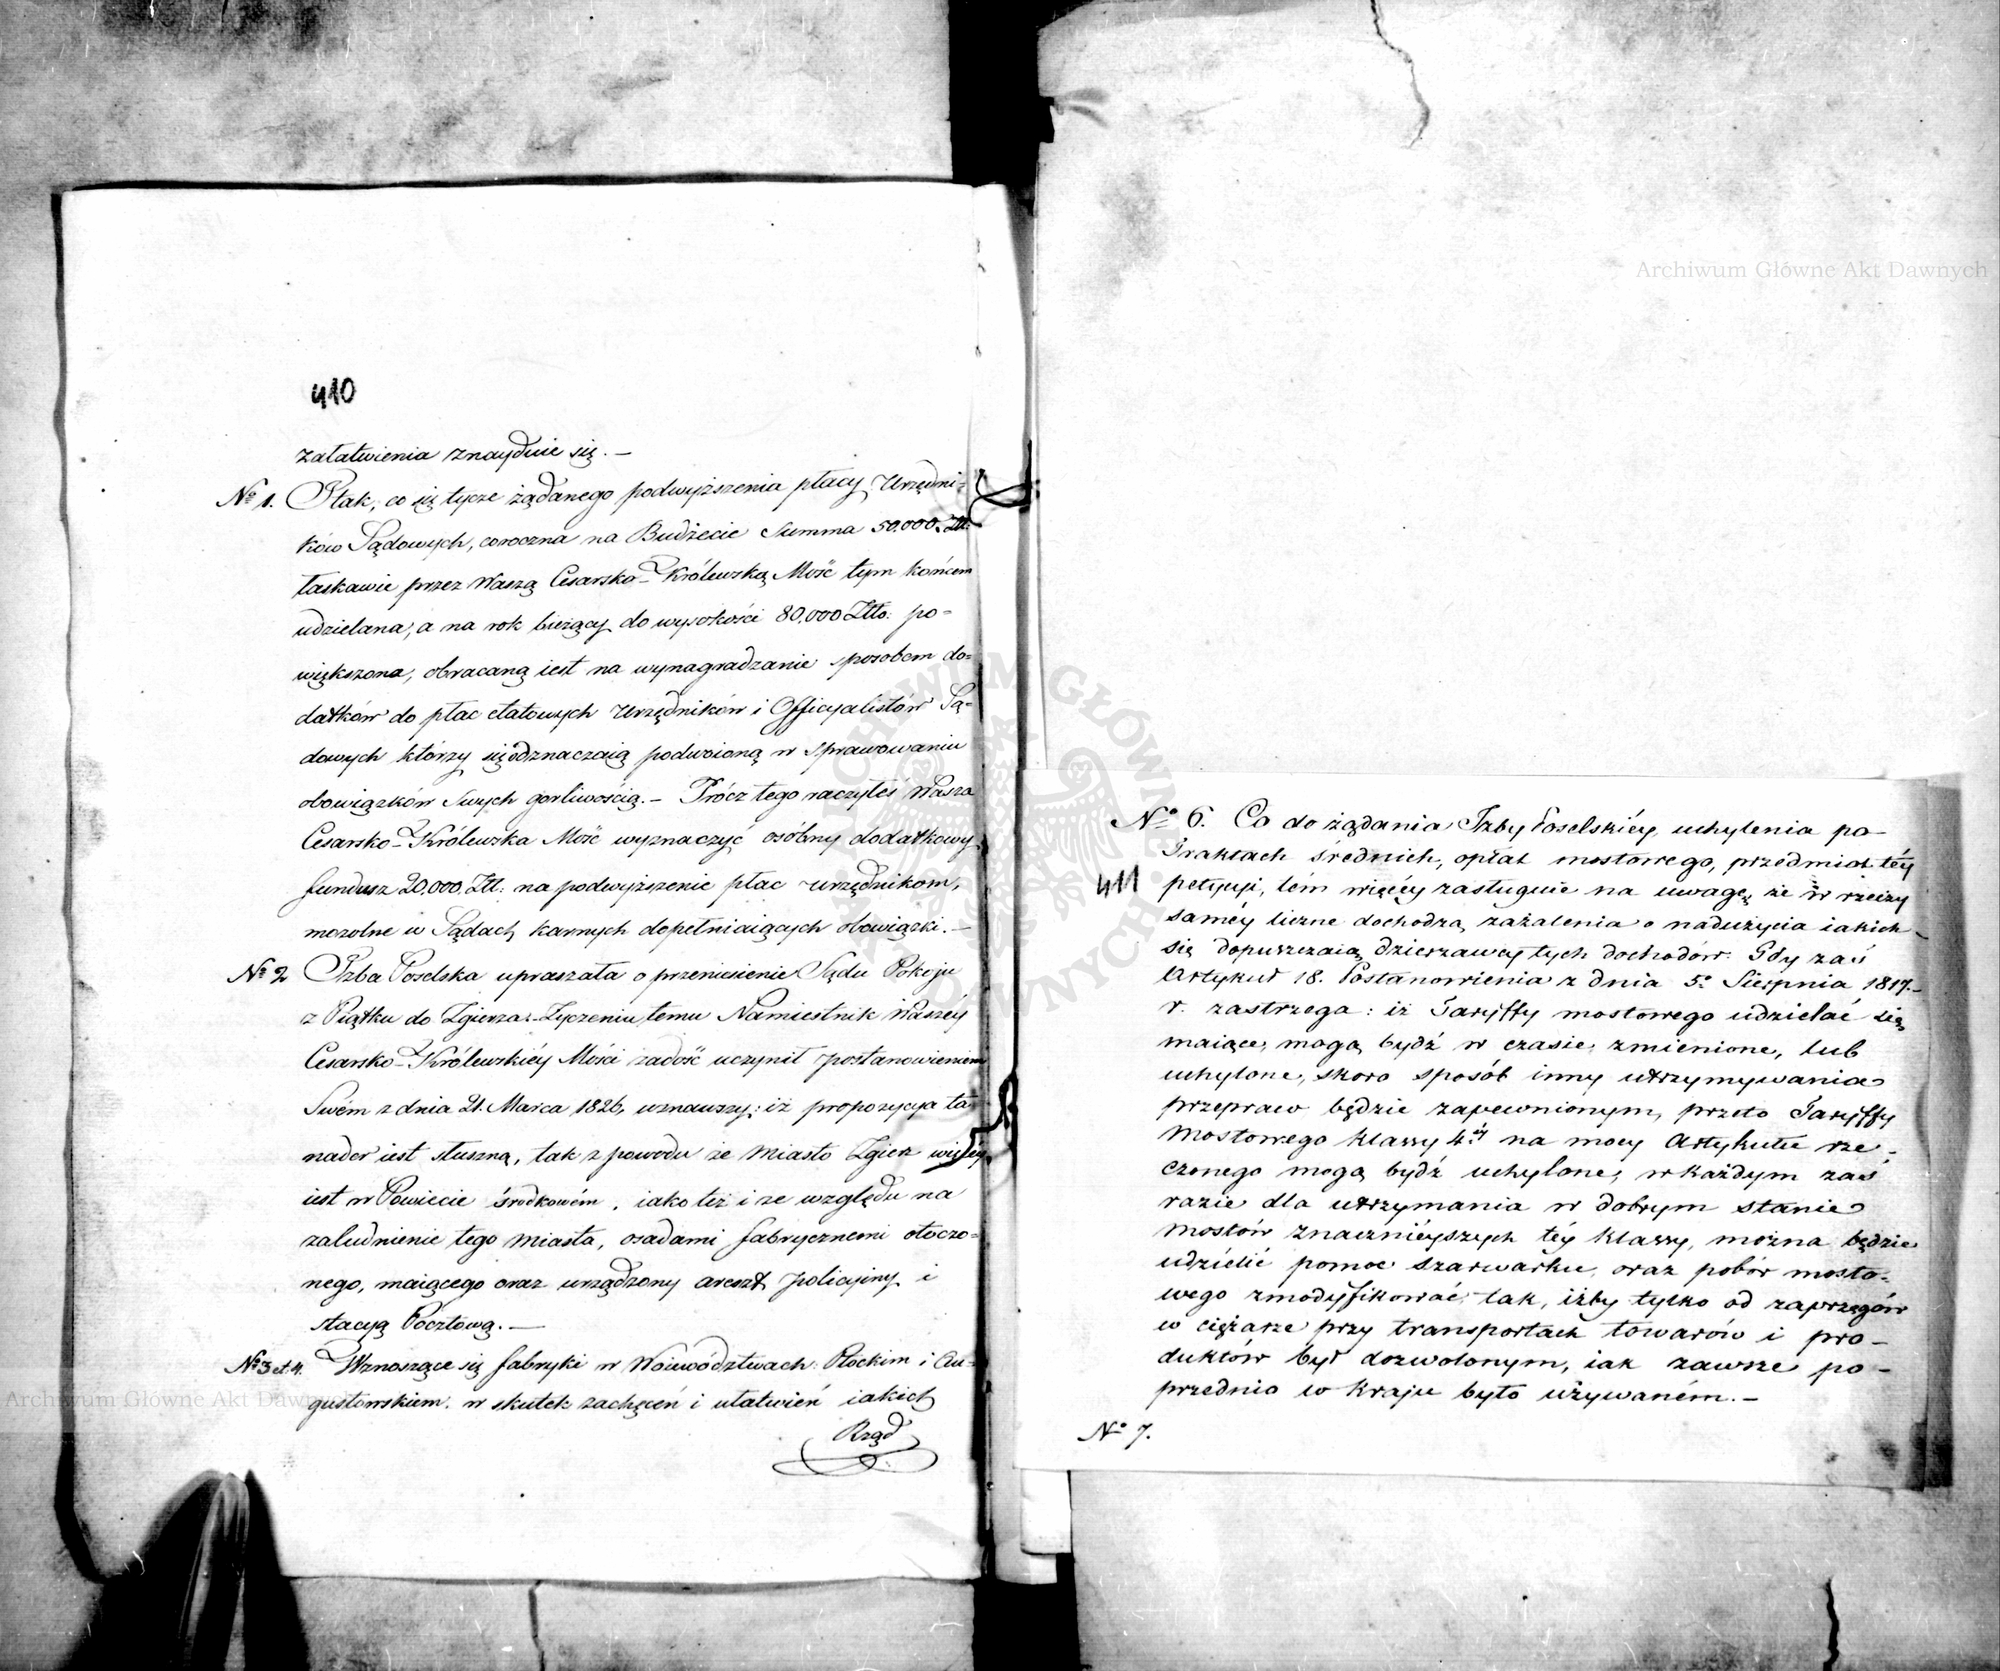 410
załatwienia znayduie się. —
Nº 1. I tak, co się tycze żądanego podwyższenia płacy Urzędni-
ków Sądowych, coroczna na Budżecie Summa 50.000. Zł:
łaskawie przez Waszą Cesarsko-Królewską Mość tym końcem
udzielana, a na rok bieżący do wysokości 80.000 Złlo: po-
większona, obracaną iest na wynagradzanie sposobem do-
datków do płac etatowych Urzędników i Officyalistów Są-
dowych którzy się odznaczaią podwoioną w sprawowaniu
obowiązków Swych gorliwością. — Prócz tego raczyłeś Wasza
Cesarsko-Królewska Mość wyznaczyć osóbny dodatkowy
fundusz 20.000. Zł: na podwyższenie płac urzędnikom,
mozolne w Sądach karnych dopełniaiących obowiązki. —
Nº 2 Izba Poselska upraszała o przeniesienie Sądu Pokoju
z Piątku do Zgierza. - Życzeniu temu Namiestnik Waszéy
Cesarsko-Królewskiéy Mości zadość uczynił postanowieniem
Swém z dnia 21. Marca 1826, uznawszy: iż propozycya ta
nader iest słuszną, tak z powodu że miasto Zgierz więcéy
iest w Powiecie środkowém, iako też i ze względu na
zaludnienie tego miasta, osadami fabrycznemi otoczo-
nego, maiącego oraz urządzony areszt policyiny i
stacyą Pocztową. —
Nº 3 et 4. Wznoszące się fabryki w Woiewództwach: Płockim i Au-
gustowskiem, w skutek zachęceń i ułatwień iakich
Rząd
Archiwum Główne Akt Dawnych
Archiwum Główne Akt Dawnych
ARCHIWUM GŁÓWNE AKT DAWNYCH
Nº 6. Co do żądania Izby Poselskiéy uchylenia po
Traktach średnich, opłat mostowego, przedmiot téy
411
petycyi, tém więcéy zasługuie na uwagę, że w rzeczy
saméy liczne dochodzą zażalenia o nadużycia iakich
się dopuszczaią dzierżawcy tych dochodów. Gdy zaś
Artykuł 18. Postanowienia z dnia 5º Sierpnia 1817.
r. zastrzega: iż Taryffy mostowego udzielać się
maiące, mogą bydź w czasie zmienione, lub
uchylone, skoro sposób inny utrzymywania
przepraw będzie zapewnionym, przeto Taryffy
Mostowego klassy 4éy na mocy Artykułu rze-
czonego mogą bydź uchylone, w każdym zaś
razie dla utrzymania w dobrym stanie
mostów znacznieyszych téy klassy, można będzie
udzielić pomoc szarwarku, oraz pobór mosto-
wego zmodyfikować tak, iżby tylko od zaprzęgów
w ciężarze przy transportach towarów i pro-
duktów był dozwolonym, iak zawsze po-
przednio w kraju było używaném. —
Nº 7.